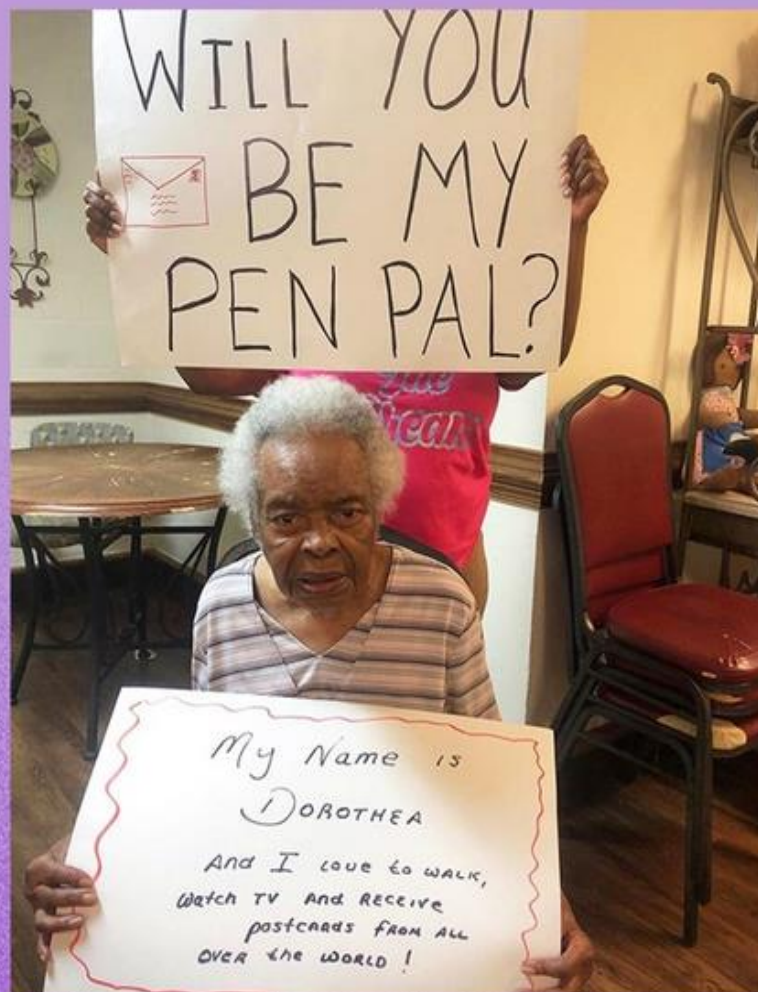 WILL YOU
BE MY
PEN PAL?
My Name is
DOROTHEA
And I love to walk,
watch TV and receive
postcards from all
over the world!